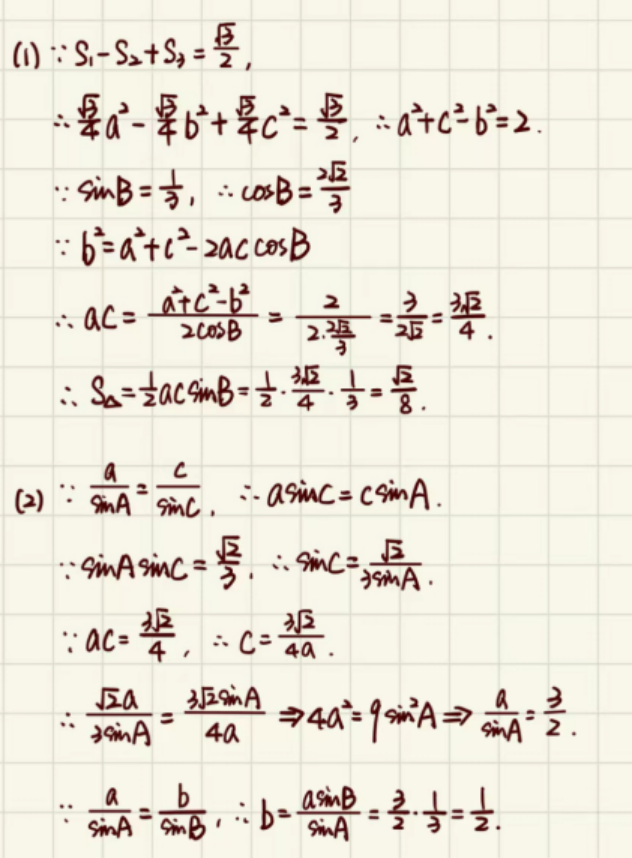 (1) ∵ S₁-S₂+S₃=√3/2,
∴ √3/4 a²-√3/4 b²+√3/4 c²=√3/2, ∴ a²+c²-b²=2.
∵ sinB=1/3, ∴ cosB=2√2/3
∵ b²=a²+c²-2accosB
∴ ac=(a²+c²-b²)/(2cosB)=2/(2·2√2/3)=3/(2√2)=3√2/4.
∴ S△=1/2 acsinB=1/2·3√2/4·1/3=√2/8.
(2) ∵ a/sinA=c/sinC, ∴ asinC=csinA.
∵ sinAsinC=√2/3, ∴ sinC=√2/(3sinA).
∵ ac=3√2/4, ∴ c=3√2/(4a).
∴ √2a/(3sinA)=3√2sinA/(4a) ⇒ 4a²=9sin²A ⇒ a/sinA=3/2.
∵ a/sinA=b/sinB, ∴ b=asinB/sinA=3/2·1/3=1/2.